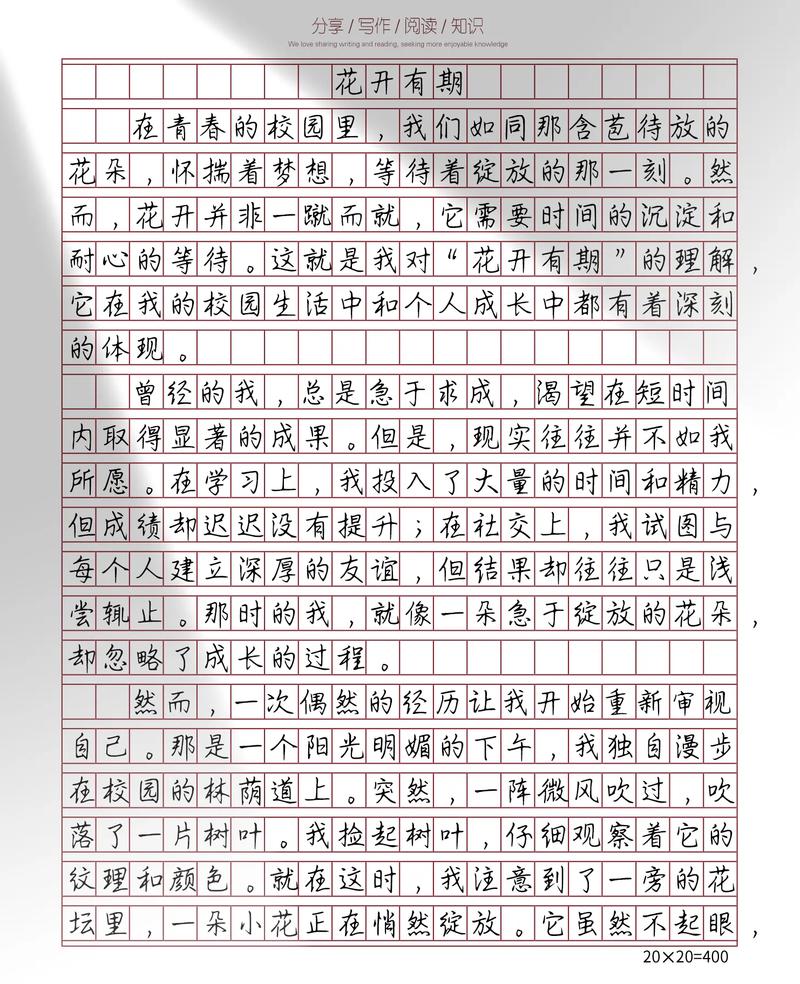 分享/写作/阅读/知识
We love sharing writing and reading, seeking more enjoyable knowledge
花开有期
在青春的校园里，我们如同那含苞待放的
花朵，怀揣着梦想，等待着绽放的那一刻。然
而，花开并非一蹴而就，它需要时间的沉淀和
耐心的等待。这就是我对“花开有期”的理解，
它在我的校园生活中和个人成长中都有着深刻
的体现。
曾经的我，总是急于求成，渴望在短时间
内取得显著的成果。但是，现实往往并不如我
所愿。在学习上，我投入了大量的时间和精力，
但成绩却迟迟没有提升；在社交上，我试图与
每个人建立深厚的友谊，但结果却往往只是浅
尝辄止。那时的我，就像一朵急于绽放的花朵，
却忽略了成长的过程。
然而，一次偶然的经历让我开始重新审视
自己。那是一个阳光明媚的下午，我独自漫步
在校园的林荫道上。突然，一阵微风吹过，吹
落了一片树叶。我捡起树叶，仔细观察着它的
纹理和颜色。就在这时，我注意到了一旁的花
坛里，一朵小花正在悄然绽放。它虽然不起眼，
20×20=400